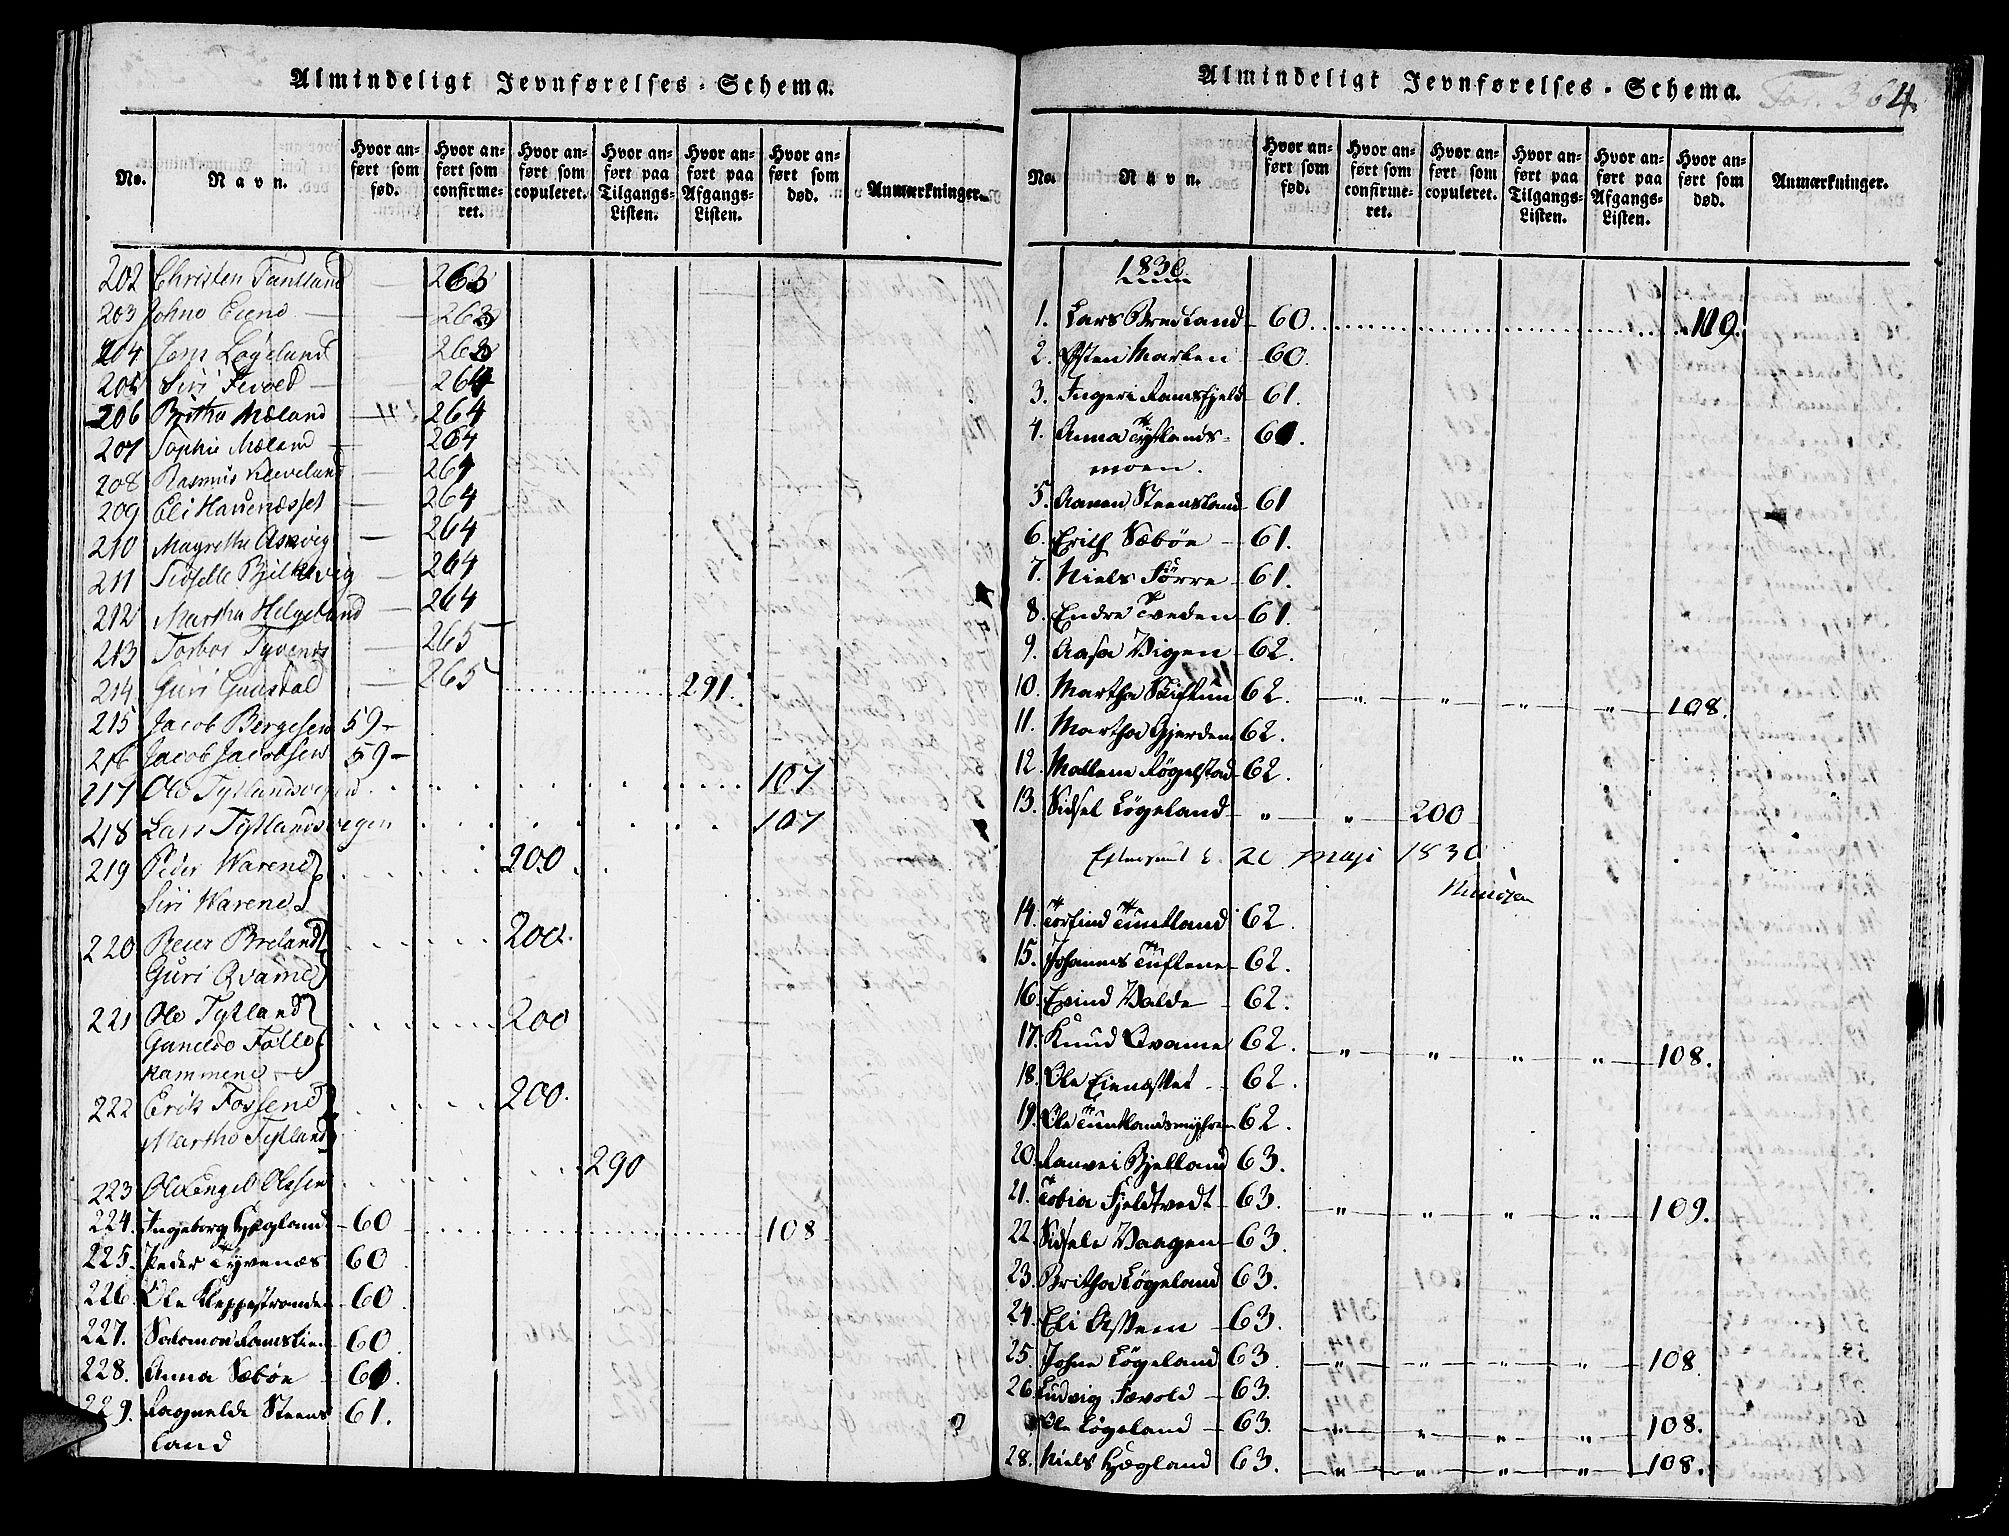 Almindeligt Jevnførelses-Schema.
No. Navn. Hvor anført som fød. Hvor anført som confirmeret. Hvor anført som copuleret. Hvor anført paa Tilgangs-Listen. Hvor anført paa Afgangs-Listen. Hvor anført som død. Anmærkninger.
202 Christen Tantland — 263
203 Johno Eiene — 263
204 263
205 Siri — 264
206 Britha Mæland — 264
207 Sophie Mæland — 264
208 Rasmus Kleveland — 264
209 Eli 264
210 Magrethe — 264
211 Sidselle — 264
212 Martha Helgeland — 264
213 Torbor Tyvenæs — 265
214 Guri — 265 291.
215 Jacob Bergesen 59 -
216 Jacob Jacobsen 59 -
217 Ole Tytlandsvigen 107
218 Lars Tytlandsvigen 107
219 Peder Warene } 200
Siri Warene
220 Peder Breland } 200.
Guri Qvame
221 Ole Tytland } 200
Gunelde
222 Erik Fossene } 200.
Martha Tytland
223 Ole Engel Olsen 290
224. Ingeborg Høgland - 60 108
225. Peder Tyvenæs 60
226. Ole Kleppestranden - 60
227. Salomon 60
228. Anna Sæbøe 61.
229. Ragnelde Steens 61.
land
Almindeligt Jevnførelses-Schema. Fol. 364.
No. Navn. Hvor anført som fød. Hvor anført som confirmeret. Hvor anført som copuleret. Hvor anført paa Tilgangs-Listen. Hvor anført paa Afgangs-Listen. Hvor anført som død. Anmærkninger.
1830.
1. Lars Bredland 60 119.
2. Østen Marken 60
3. Ingeri Ramsfjeld 61.
4. Anna Tytlands- 61.
moen.
5. Aanen Steensland 61
6. Erith Sæbøe - 61.
7. Niels Førre - 61.
8. Endre Tveden 61.
9. Aasa Vigen - 62.
10. Martha 62. " " " " 108.
11. Martha Gjerden 62.
12. Mallene Røgelstad 62.
13. Sidsel Løgeland " " 200
20 Maji 1830
14. Torfind Tuntland 62.
15. Johannes Tuftene 62.
16. Evind Valde - 62.
17. Knud Qvame 62. " " " " 108.
18. Ole Eienæsset 62.
19. Ole Tuntlandsmyhren 62.
20. Ranvei Bjelland 63.
21. Tobia Fjeldtvedt - 63. " " " " 109.
22. Sidsele Vaagen 63.
23. Britha Løgeland 63.
24. Eli - 63.
25. Johne Løgeland 63. " " " " 108
26. Ludvig Fævold - 63.
Ole Løgeland - 63. " " " " 108.
28. Niels Høgland 63. " " " " 108.